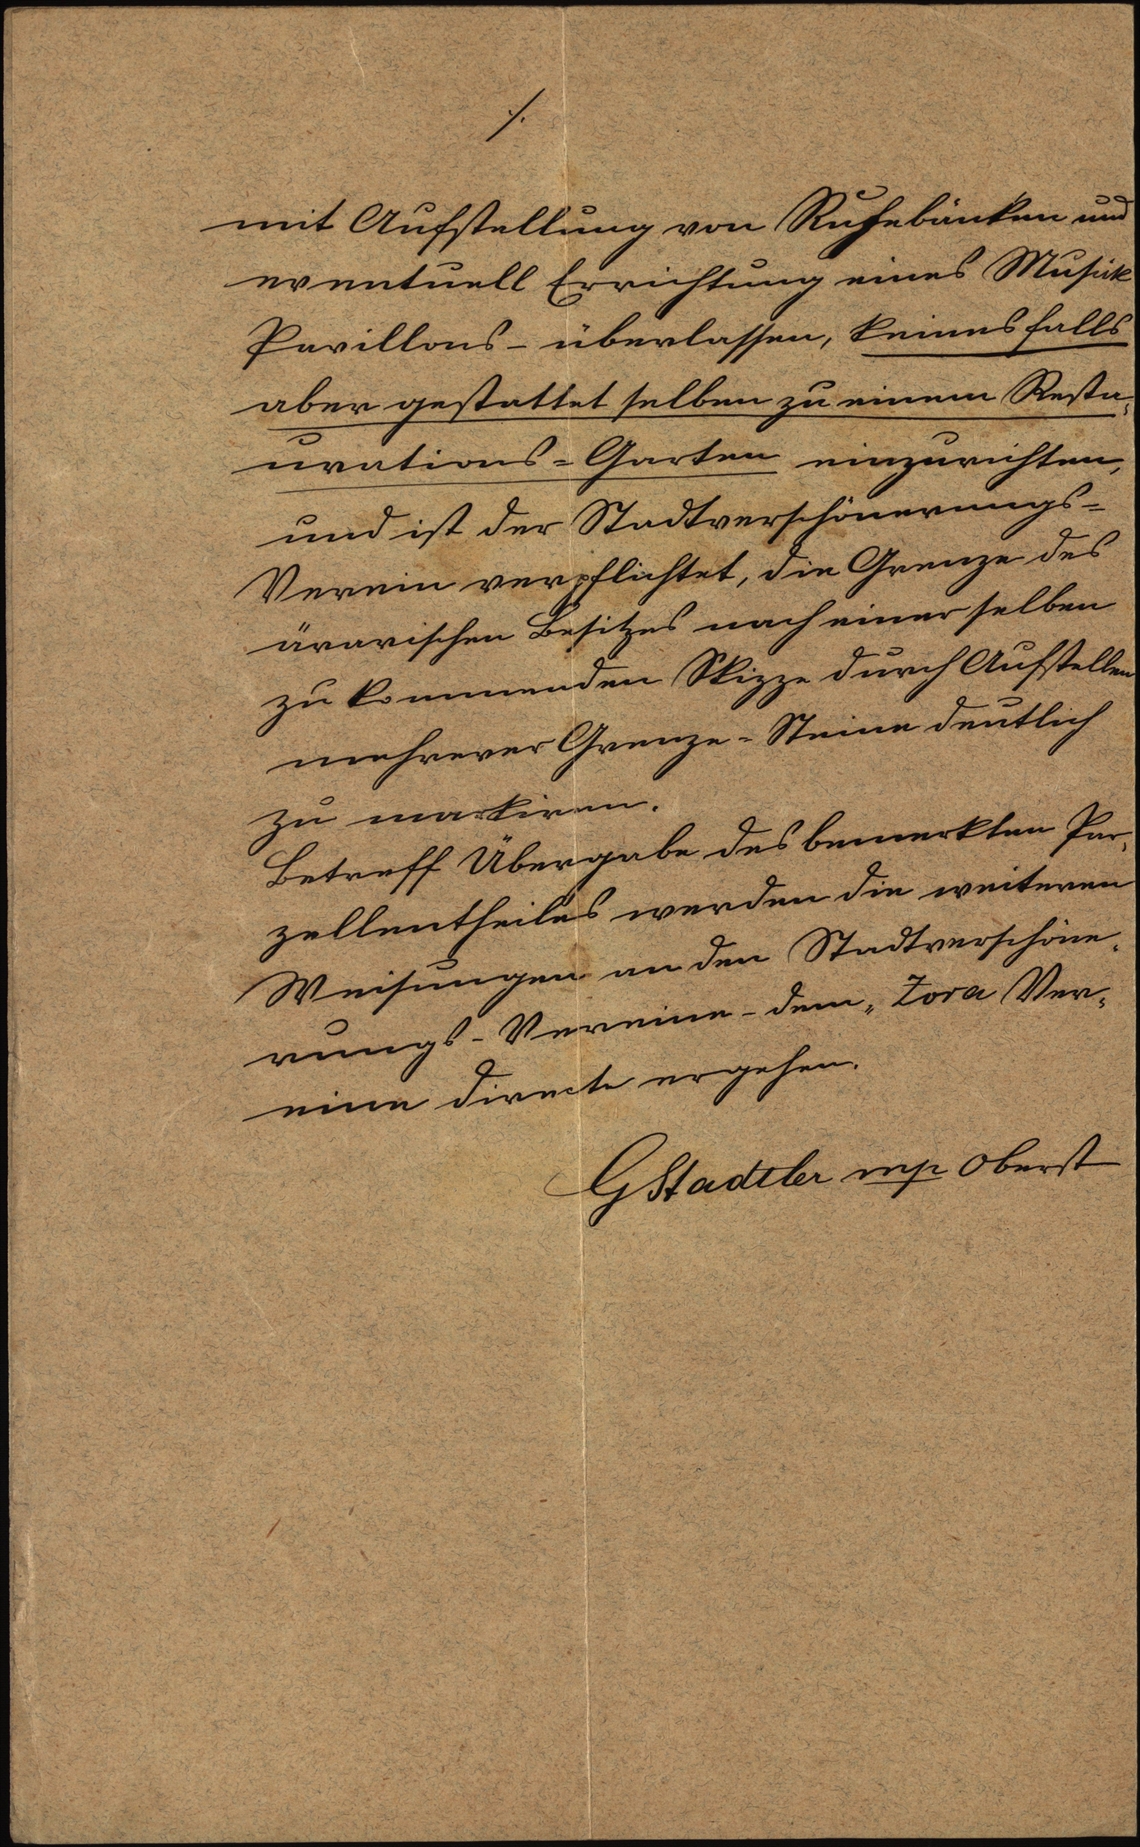 ./.
mit Aufstellung von Ruhebänken und
eventuell Errichtung eines Musik
Pavillons – überlassen, keinesfalls
aber gestattet selben zu einem Resta-
urations=Garten einzurichten,
und ist der Stadtverschönerungs=
Verein verpflichtet, die Grenze des
ärarischen Besitzes nach einer selben
zu kommenden Skizze durch Aufstellen
mehrerer Grenze=Steine deutlich
zu markiren.
Betreff Übergabe des bemerkten Par-
zellentheiles werden die weiteren
Weisungen an den Stadtverschöne-
rungs-Vereine – dem „Zora Ver-
eine directe ergehen.
GStadtler mp Oberst